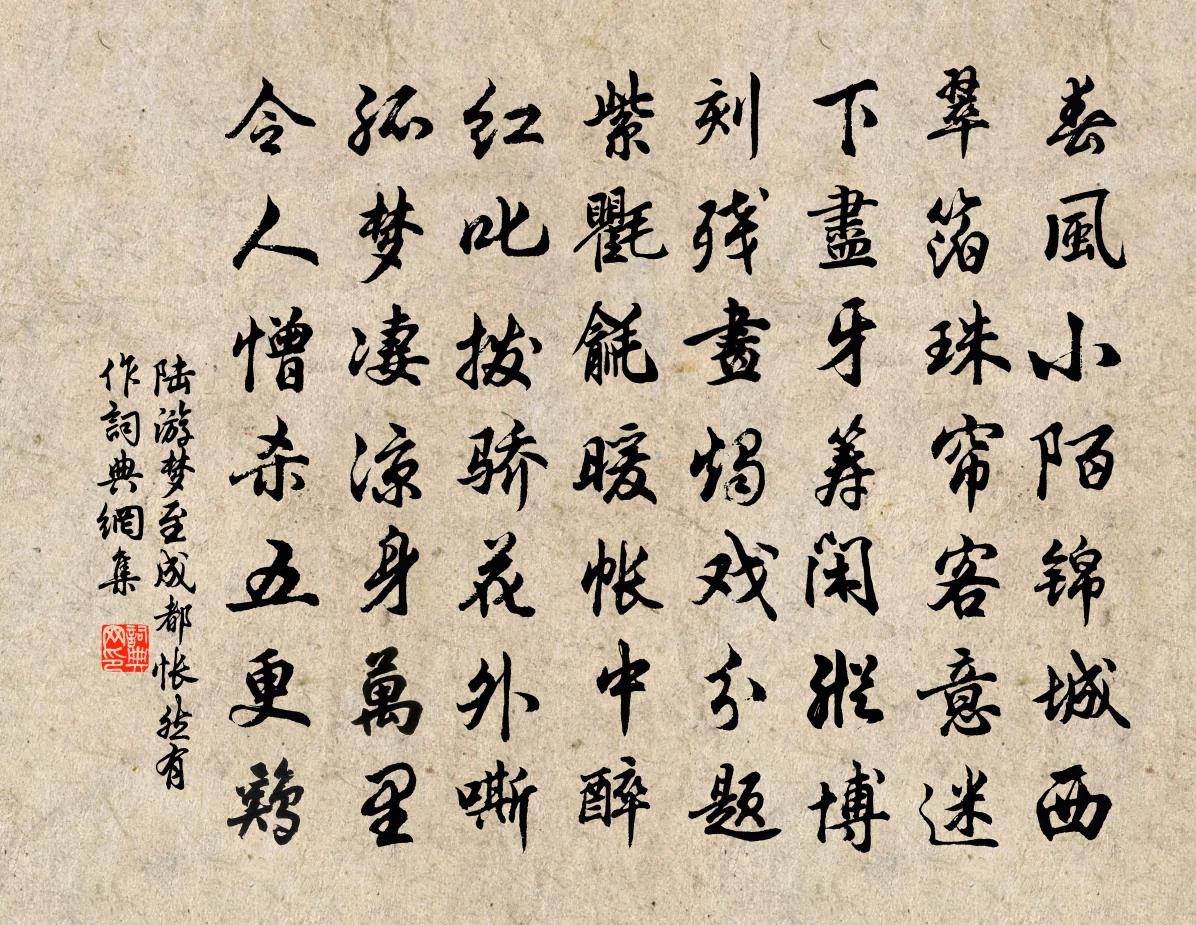 春風小陌锦城西
翠箔珠帘客意迷
下盡牙筹闲縱博
刻残畫燭戏分题
紫氍毹暖帐中醉
红叱拨骄花外嘶
孤梦凄凉身萬里
令人憎杀五更鷄
陆游梦至成都怅然有
作詞典網集
詞典网印